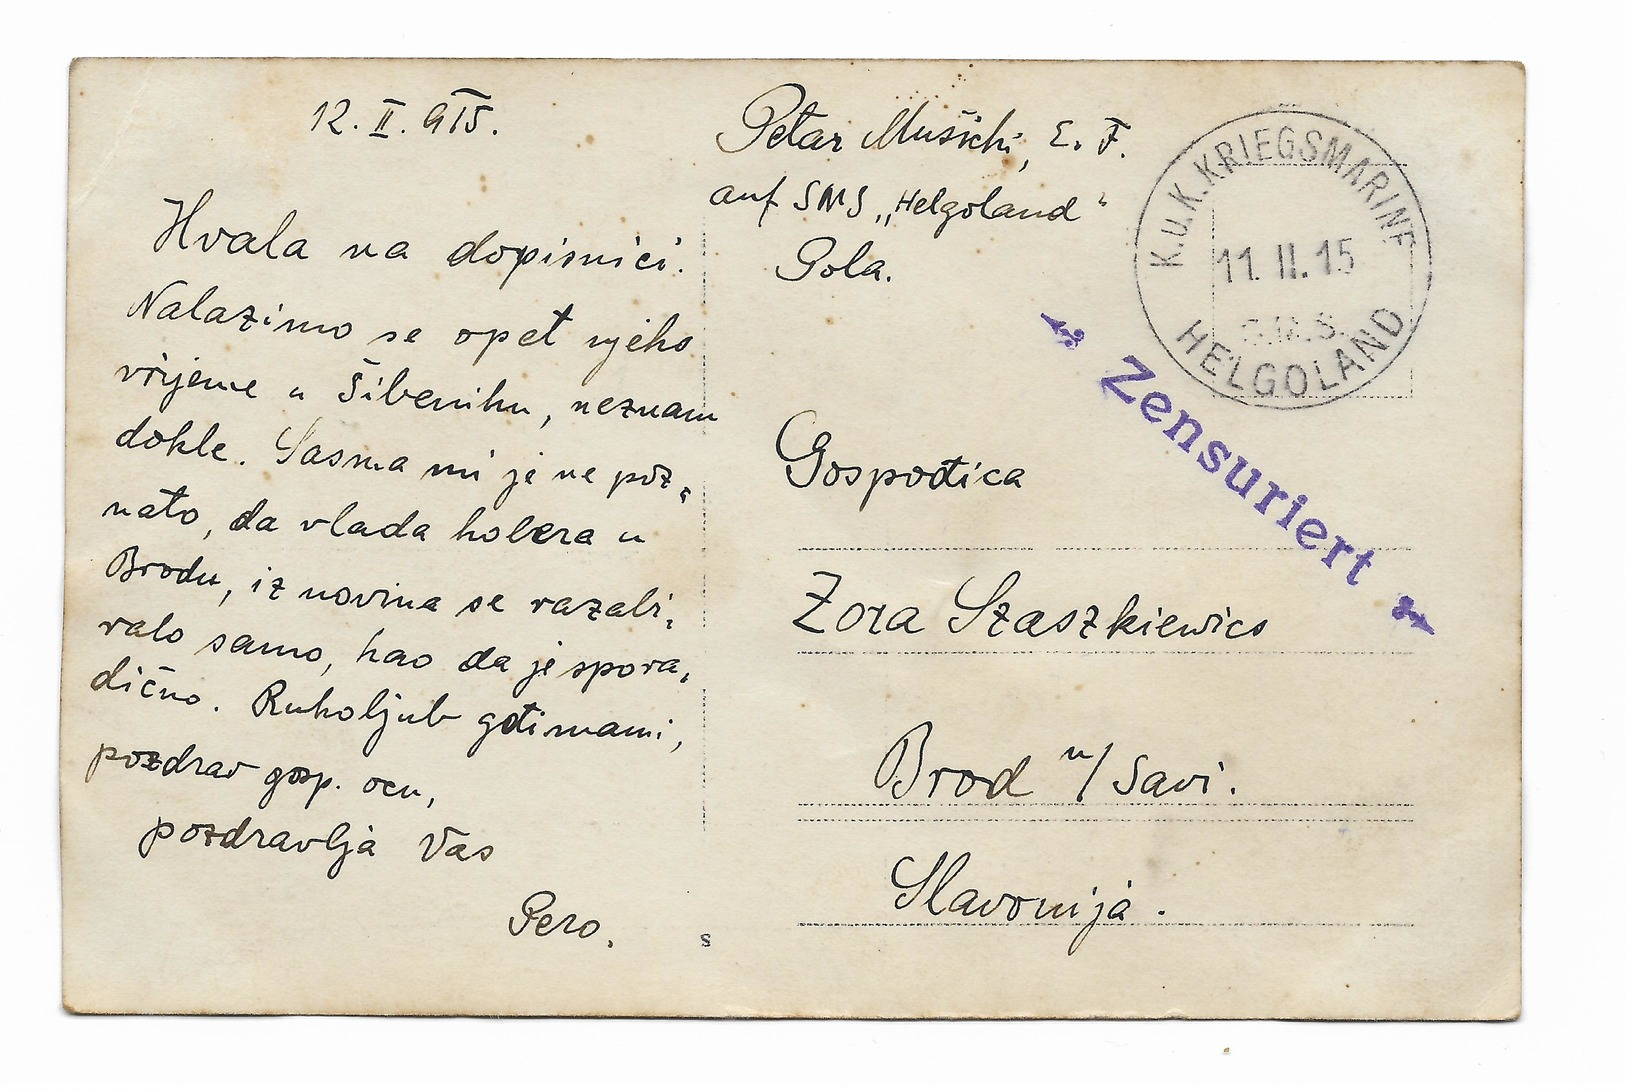 12. II. 915.
Hvala na dopisnici.
Nalazimo se opet njeko
vrijeme u Šibeniku, neznam
dokle. Sasma mi je ne poz-
nato, da vlada kolera u
Brodu, iz novina se razabi-
ralo samo, kao da je spora-
dično. Rukoljub gđi mami,
pozdrav gosp. ocu,
pozdravlja Vas
Pero.
S
Petar Mušicki, E. F.
auf SMS „Helgoland“
Pola.
K.u.K. KRIEGSMARINE
11. II. 15
S.M.S.
HELGOLAND
Zensuriert
Gospođica
Zora Szaszkiewics
Brod n/ Savi.
Slavonija.